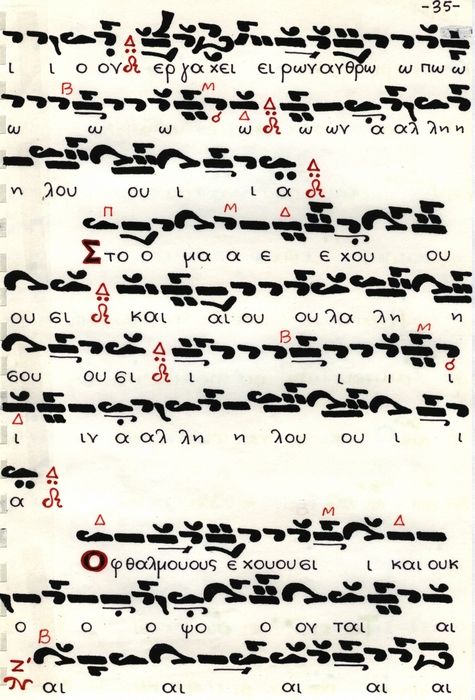 -35-
ι ι ο ον Δ ερ γα χει ει ρων αν θρω ω πω ω
Β Μ Δ
ω ω ω ω ω ων α αλ λη λη
η λου ου ι ι α Δ
Π Μ Δ
Στο ο μα α ε ε χου ου
ου σι Δ και αι ου ου λα λη η
Β Μ
σου ου σι Δ ι ι ι ι
Δ
ι ιν α αλ λη η λου ου ι ι
α Δ
Δ Μ Δ
Οφθαλμουους ε χουου σι ι και ουκ
ο ο ο ψο ο ον ται αι
Β
Ζ' αι αι αι αι αι